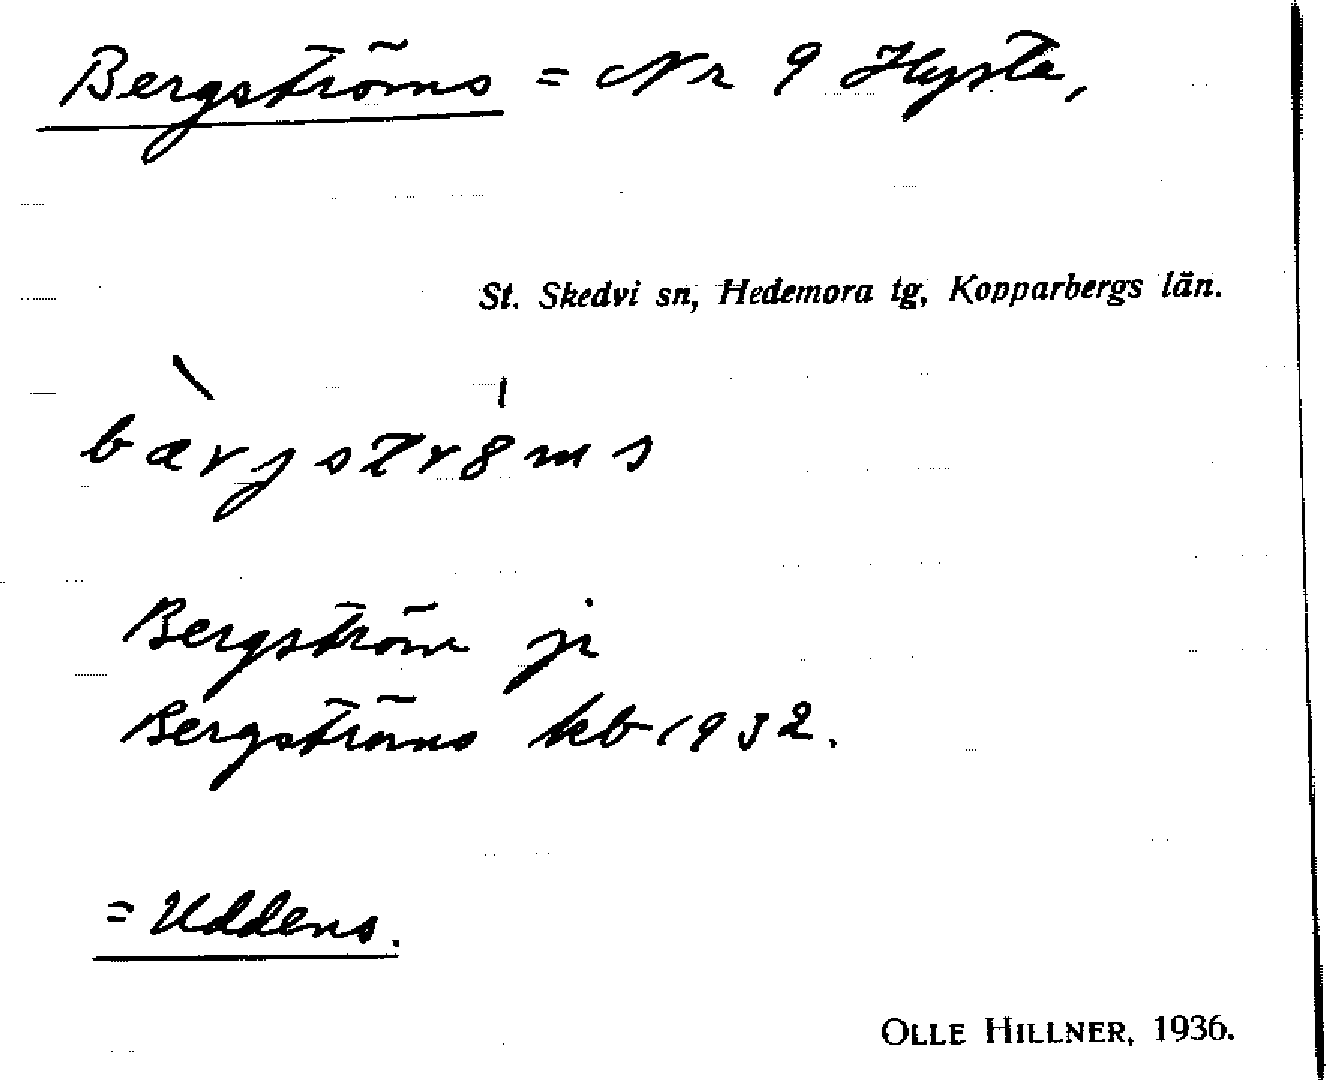 Bergströms = Nr 9 Hysta,
St. Skedvi sn, Hedemora tg, Kopparbergs län.
bærjstr8ms
Bergström ji
Bergströms kb 1932.
= Uddens.
OLLE HILLNER, 1936.